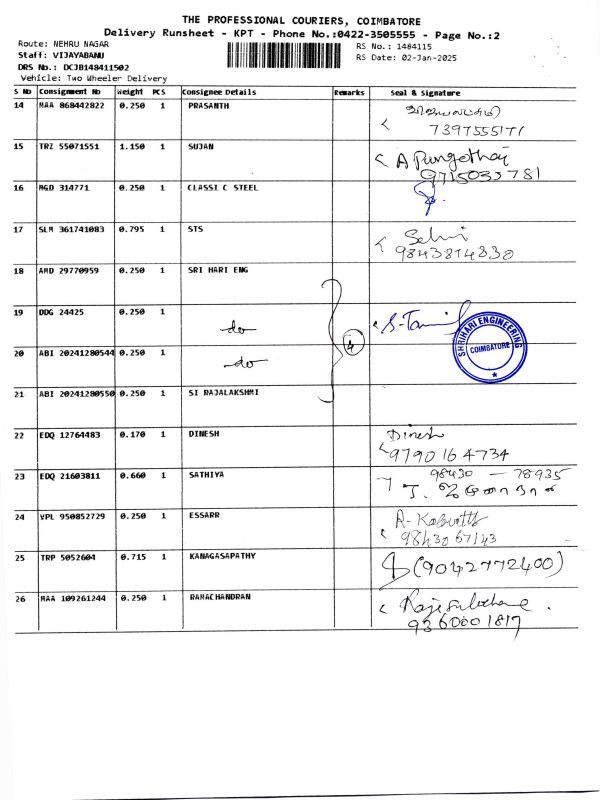 THE PROFESSIONAL COURIERS, COIMBATORE
Delivery Runsheet - KPT - Phone No.:0422-3505555 - Page No.:2
Route: NEHRU NAGAR
RS No.: 1484115
Staff: VIJAYABANU
RS Date: 02-Jan-2025
DRS No.: DCJB148411502
Vehicle: Two Wheeler Delivery
S No Consignment No Weight PCS Consignee Details Remarks Seal & Signature
14 MAA 868442822 0.250 1 PRASANTH
< 7397555171
15 TRZ 55071551 1.150 1 SUJAN
9715033781
16 MGD 314771 0.250 1 CLASSI C STEEL
17 SLM 361741083 0.795 1 STS
< Selvi
9843814330
18 AMD 29770959 0.250 1 SRI HARI ENG
19 DDG 24425 0.250 1 -do-
4
SHRIHARI ENGINEERING
COIMBATORE
20 ABI 20241280544 0.250 1 -do-
21 ABI 20241280550 0.250 1 SI RAJALAKSHMI
22 EDQ 12764483 0.170 1 DINESH
Dinesh
<9790164734
23 EDQ 21603811 0.660 1 SATHIYA
98430 - 78935
24 VPL 950852729 0.250 1 ESSARR
< 9843067143
25 TRP 5052604 0.715 1 KANAGASAPATHY
(9042772400)
26 MAA 109261244 0.250 1 RAMACHANDRAN
9360001817